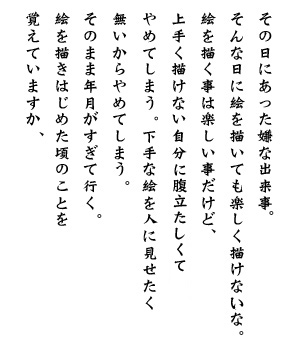 その日にあった嫌な出来事。
そんな日に絵を描いても楽しく描けないな。
絵を描く事は楽しい事だけど、
上手く描けない自分に腹立たしくて
やめてしまう。下手な絵を人に見せたく
無いからやめてしまう。
そのまま年月がすぎて行く。
絵を描きはじめた頃のことを
覚えていますか、